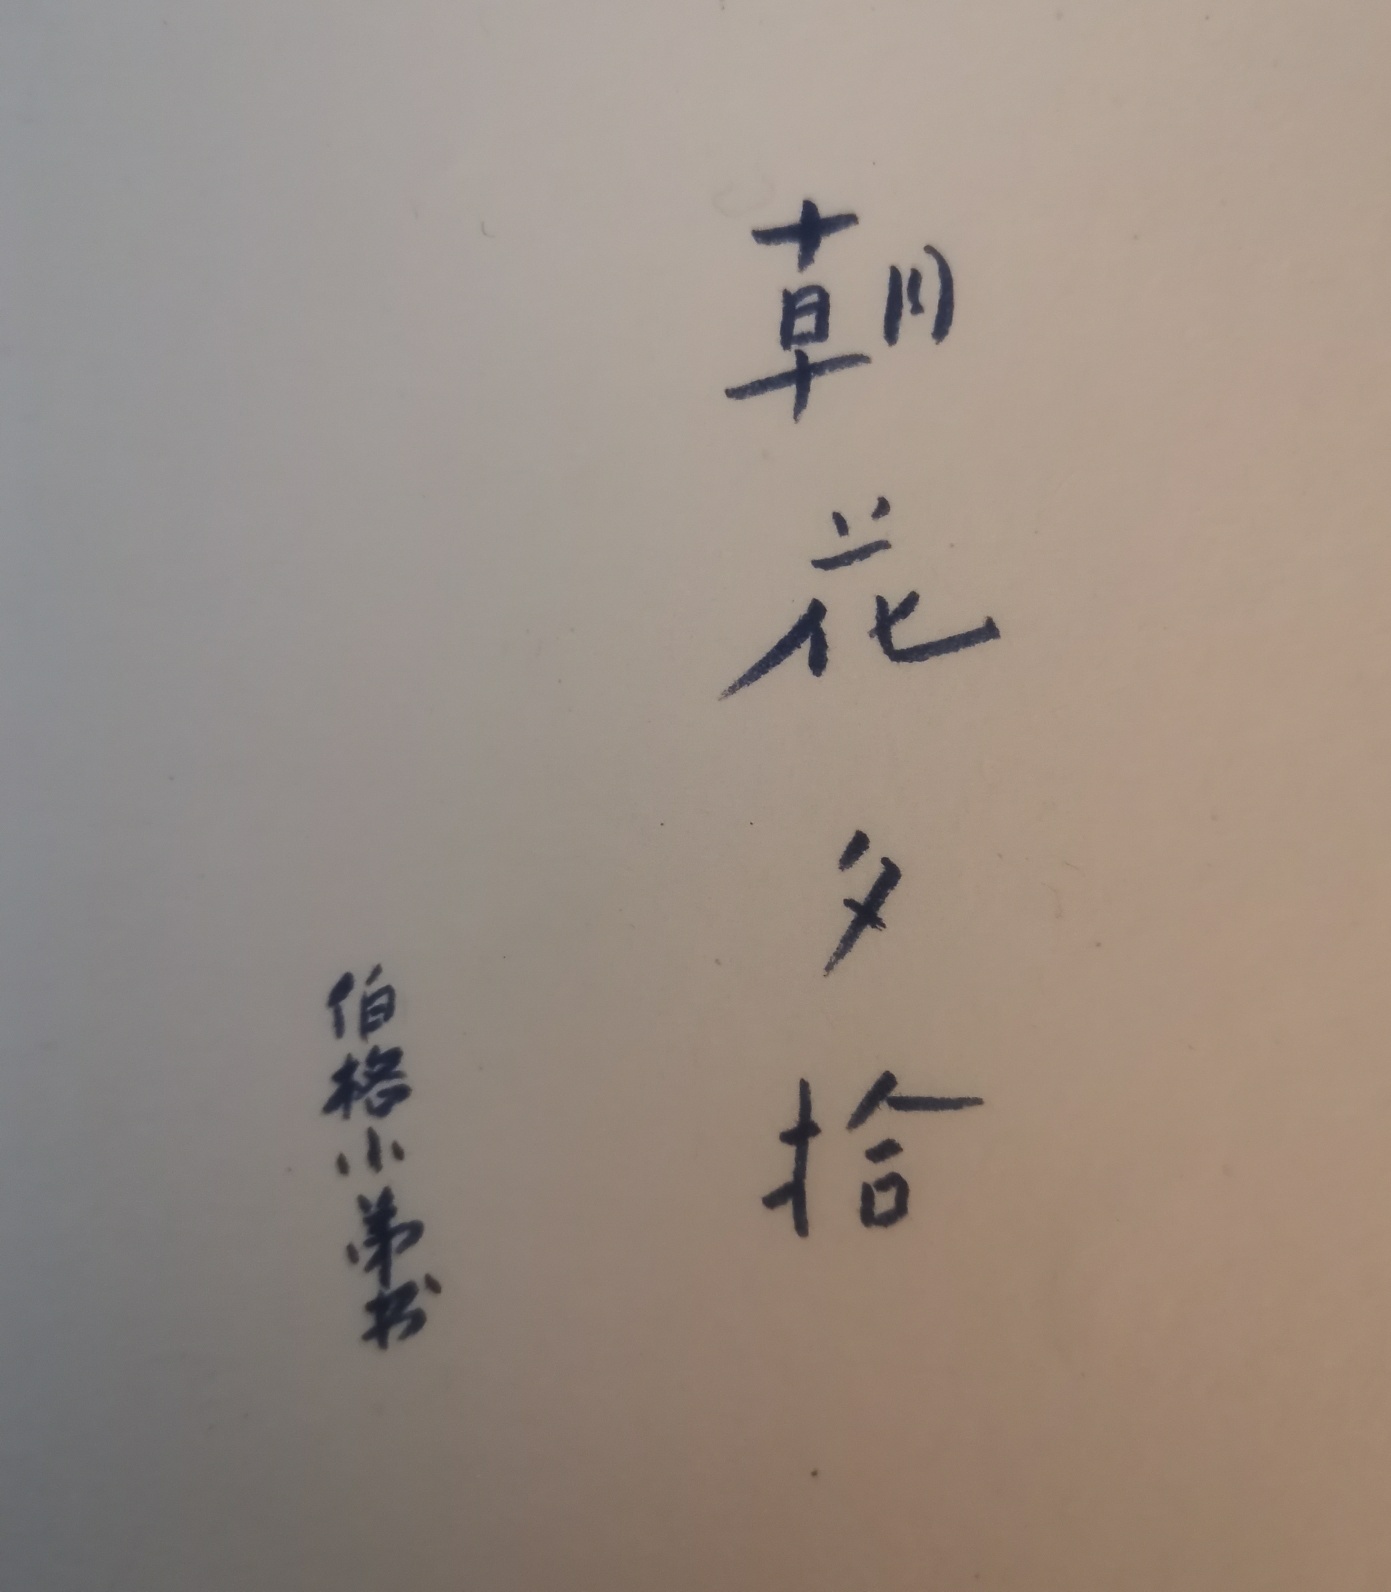 朝花夕拾
伯格小弟书